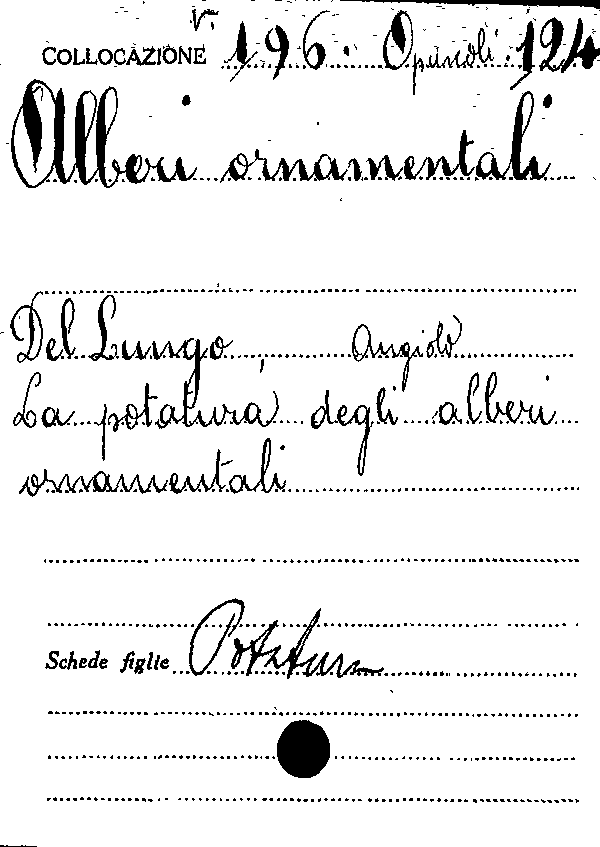 v.
COLLOCAZIONE 196. Opuscoli. 124
Alberi ornamentali
Del Lungo, Angiolo
La potatura degli alberi
ornamentali
Schede figlie Potatura